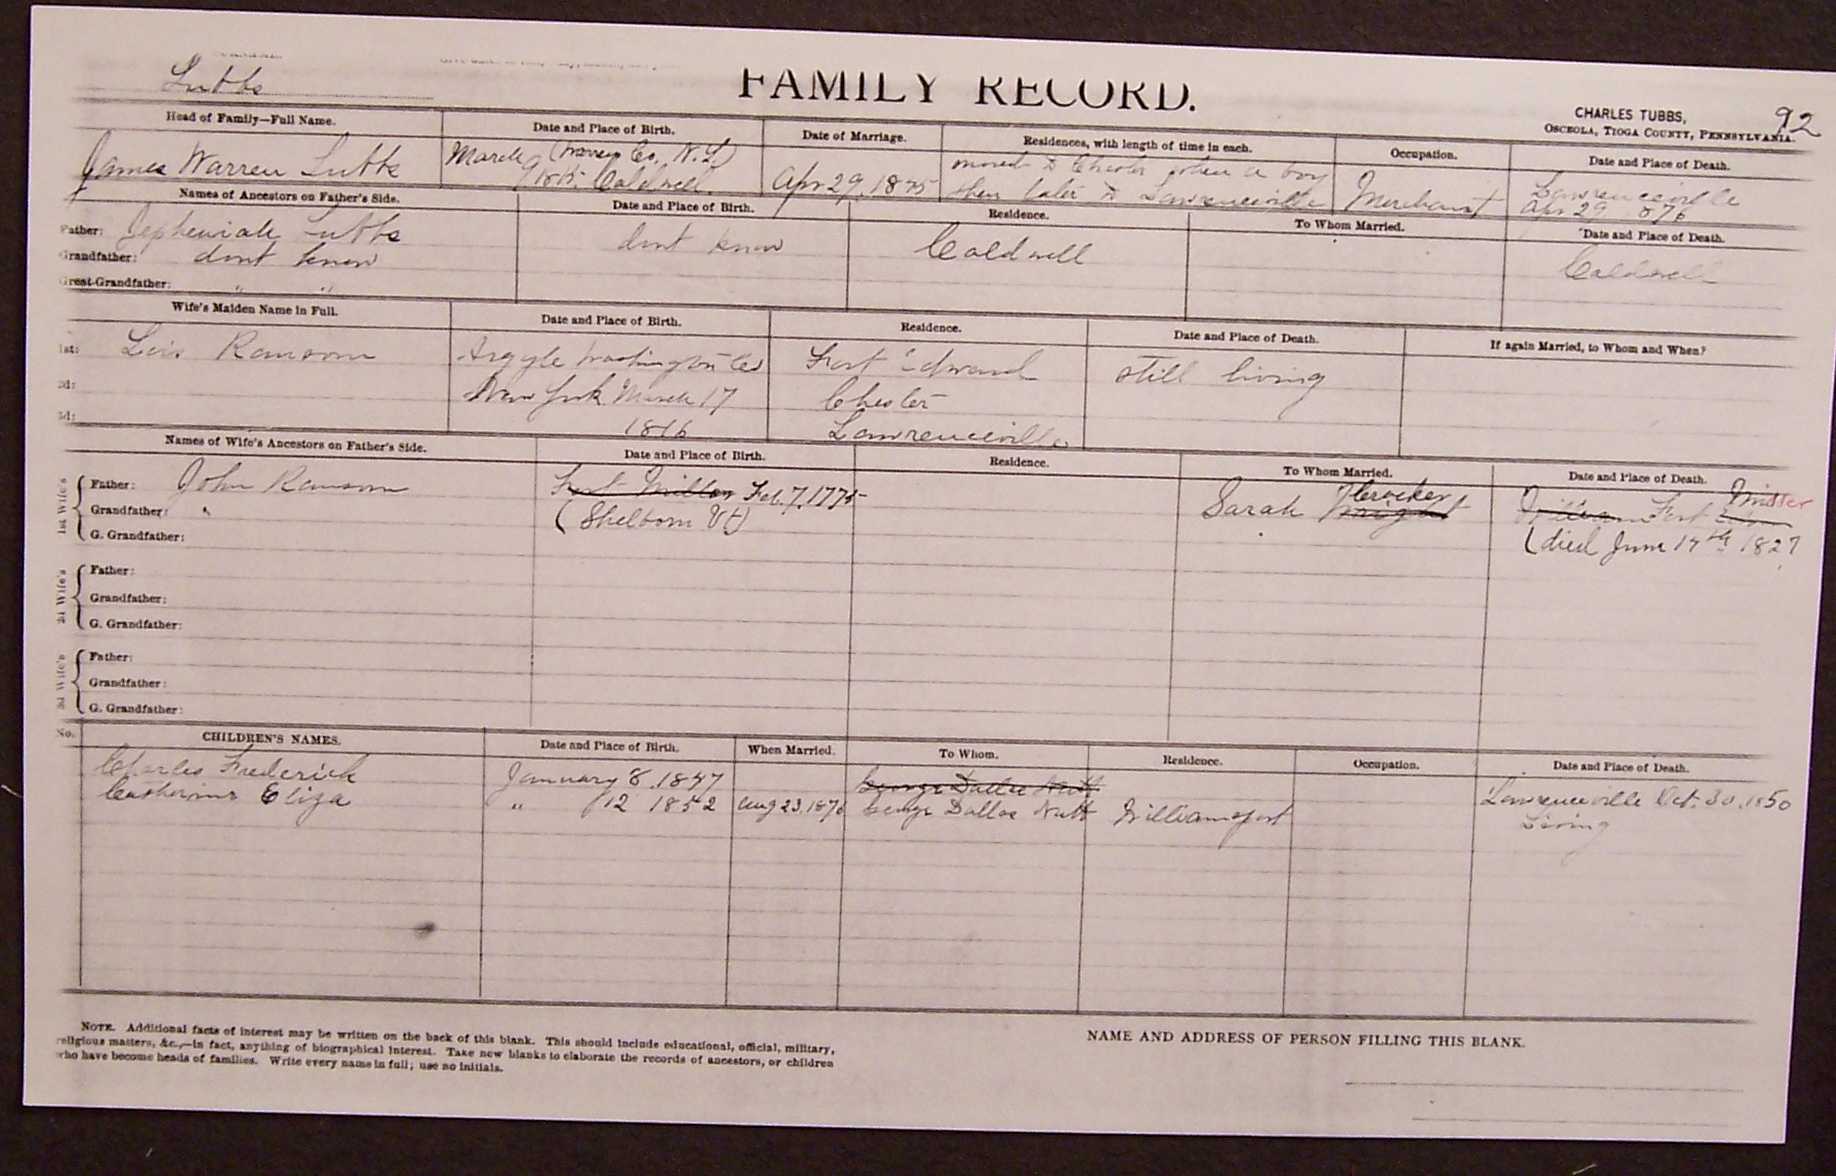 Tubbs
FAMILY RECORD.
92
CHARLES TUBBS,
OSCEOLA, TIOGA COUNTY, PENNSYLVANIA.
Head of Family—Full Name. Date and Place of Birth. Date of Marriage. Residences, with length of time in each. Occupation. Date and Place of Death.
James Warren Tubbs March (Warren Co. N.Y.) Apr 29, 1845 moved to Chester when a boy Merchant Lawrenceville
Caldwell then later to Lawrenceville Apr 29 876
Names of Ancestors on Father's Side. Date and Place of Birth. Residence. To Whom Married. Date and Place of Death.
Father: Zepheniah Tubbs dont know Caldwell Caldwell
Grandfather: dont know
Great-Grandfather: " "
Wife's Maiden Name in Full. Date and Place of Birth. Residence. Date and Place of Death. If again Married, to Whom and When?
1st: Lois Ransom Argyle Washington Co Fort Edward still living
2d: New York March 17 Chester
3d: 1816 Lawrenceville
Names of Wife's Ancestors on Father's Side. Date and Place of Birth. Residence. To Whom Married. Date and Place of Death.
1st Wife's Father: John Ransom Fort Miller Feb. 7, 1775 Sarah Wright Crocker William Fort Miller
Grandfather: " (Shelborn Vt) (died June 17th 1827
G. Grandfather:
2d Wife's Father:
Grandfather:
G. Grandfather:
3d Wife's Father:
Grandfather:
G. Grandfather:
No. CHILDREN'S NAMES. Date and Place of Birth. When Married. To Whom. Residence. Occupation. Date and Place of Death.
Charles Frederick January 8, 1847 George Dallas Nutt Lawrenceville Oct. 30, 1850
Catherine Eliza " 12 1852 Aug 23, 1876 George Dallas Nutt Williamsport Living
NOTE. Additional facts of interest may be written on the back of this blank. This should include educational, official, military,
religious matters, &c.,—in fact, anything of biographical interest. Take new blanks to elaborate the records of ancestors, or children
who have become heads of families. Write every name in full; use no initials.
NAME AND ADDRESS OF PERSON FILLING THIS BLANK.